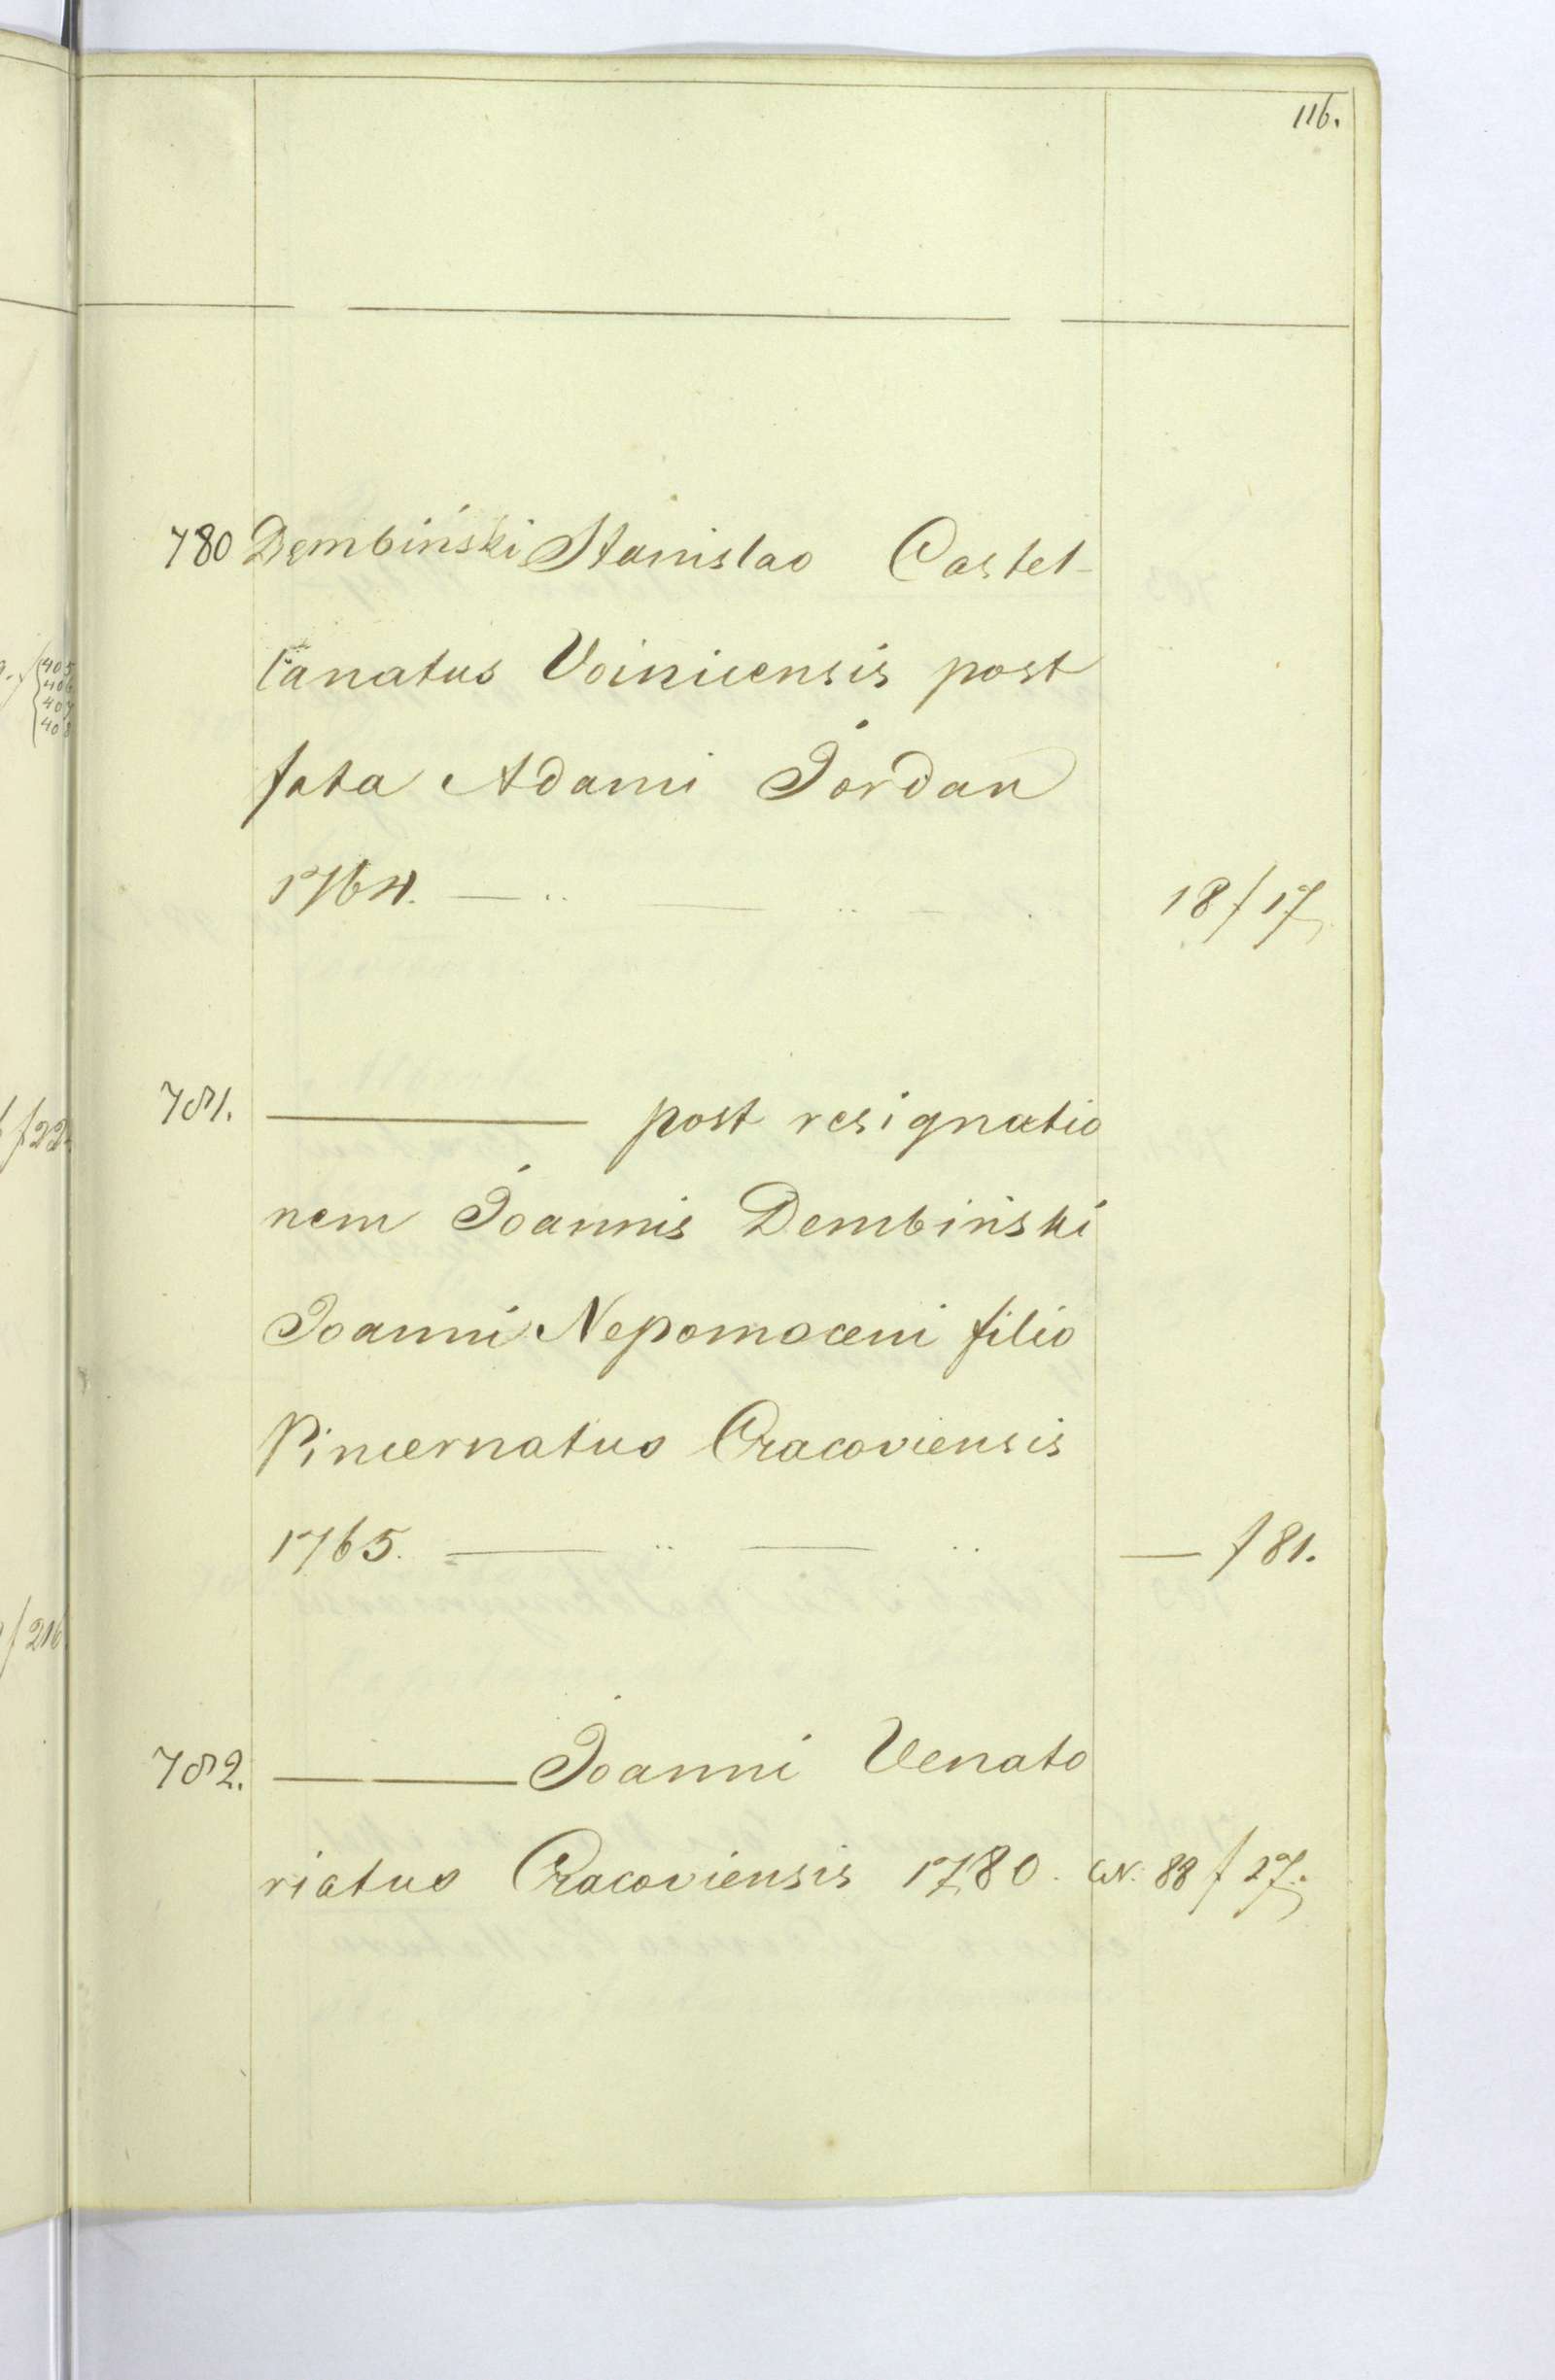 116.
780 Dęmbiński Stanislao Castel-
lanatus Voinicensis post
fata Adami Jordan
1764. — .. — .. 18 f 17
781. — post resignatio
nem Joannis Dembiński
Joanni Nepomoceni filio
Pincernatus Cracoviensis
1765. — .. — .. — f 81.
782. — Joanni Venato
riatus Cracoviensis 1780. W. 88 f 27.